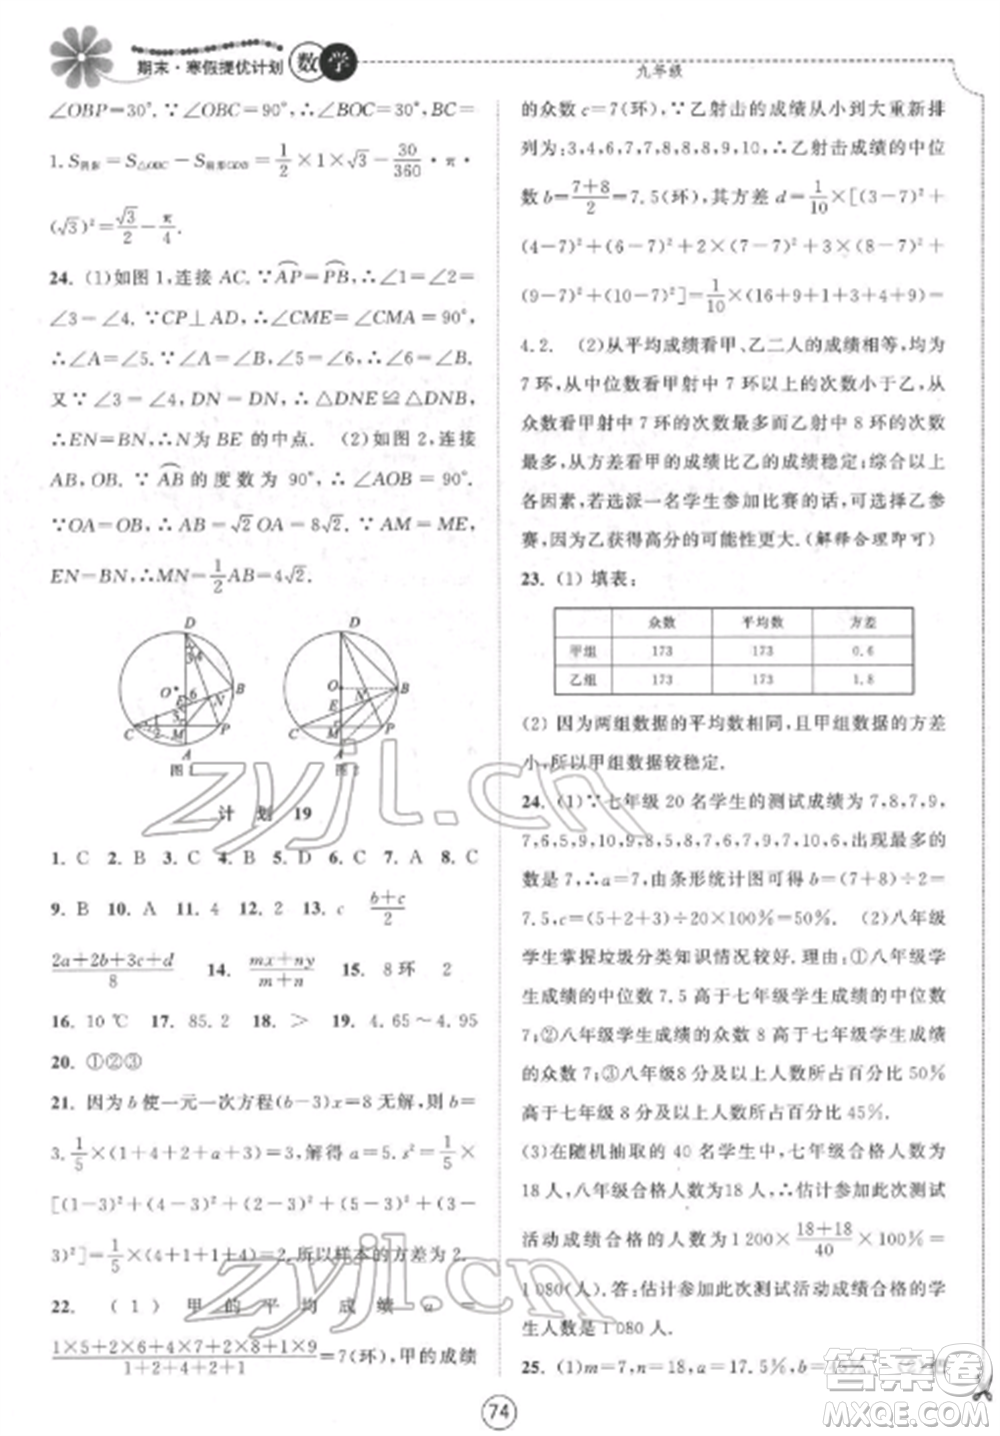 期末·寒假提优计划 数学
九年级
∠OBP=30°.∵∠OBC=90°,∴∠BOC=30°,BC=
1.S阴影=S△OBC-S扇形COD=1/2×1×√3-30/360·π·
(√3)²=√3/2-π/4.
24. (1)如图 1,连接 AC.∵AP⌒=PB⌒,∴∠1=∠2=
∠3=∠4.∵CP⊥AD,∴∠CME=∠CMA=90°,
∴∠A=∠5.∵∠A=∠B,∠5=∠6,∴∠B=∠6.
又∵∠3=∠4,DN=DN,∴△DNE≌△DNB,
∴EN=BN,∴N为 BE 的中点. (2)如图 2,连接
AB,AO,OB.∵AB⌒ 的度数为 90°,∴∠AOB=90°.
∵OA=OB,∴AB=√2OA=8√2.∵AM=ME,
EN=BN,∴MN=1/2AB=4√2.
D
3 4
O
6
E
N
B
5
C
M
P
A
图 1
D
O
B
E
N
C
M
P
A
图 2
计 划 19
1. C 2. B 3. C 4. B 5. D 6. C 7. A 8. C
9. B 10. A 11. 4 12. 2 13. c (b+c)/2
(2a+2b+3c+d)/8 14. (mx+ny)/(m+n) 15. 8 环 2
16. 10 ℃ 17. 85.2 18. > 19. 4.65～4.95
20. ①②③
21. 因为 b 使一元一次方程(b-3)x=8 无解,所以 b=
3.1/5×(1+4+2+a+3)=3,解得 a=5.s²=1/5×
[(1-3)²+(4-3)²+(2-3)²+(5-3)²+(3-
3)²]=1/5×(4+1+1+4)=2.所以样本的方差为 2.
22. (1) 甲 的 平 均 成 绩 a=
(1×5+2×6+4×7+2×8+1×9)/(1+2+4+2+1)=7(环),甲的成绩
的众数 c=7(环),∵乙射击的成绩从小到大重新排
列为:3,4,6,7,7,8,8,8,9,10,∴乙射击成绩的中位
数 b=(7+8)/2=7.5(环),其方差 d=1/10×[(3-7)²+
(4-7)²+(6-7)²+(7-7)²×2+(8-7)²×3+
(9-7)²+(10-7)²]=1/10×(16+9+1+3+4+9)=
4.2. (2)从平均成绩看甲、乙二人的成绩相等,均为
7 环,从中位数看甲射中 7 环以上的次数小于乙,从
众数看甲射中 7 环的次数最多而乙射中 8 环的次数
最多,从方差看甲的成绩比乙的成绩稳定;综合以上
各因素,若选派一名学生参加比赛的话,可选择乙参
赛,因为乙获得高分的可能性更大.(解释合理即可)
23. (1) 填表:
众数 平均数 方差
甲组 173 173 0.6
乙组 173 173 1.8
(2) 因为两组数据的平均数相同,且甲组数据的方差
小,所以甲组数据较稳定.
24. (1)∵七年级 20 名学生的测试成绩为 7,8,7,9,
7,6,5,9,10,9,8,5,8,7,6,7,9,7,10,6,出现最多的
数是 7,∴a=7,由条形统计图可得 b=(7+8)÷2=
7.5,c=(5+2+3)÷20×100%=50%. (2)八年级
学生掌握垃圾分类知识情况较好,理由:①八年级学
生成绩的中位数 7.5 高于七年级学生成绩的中位数
7;②八年级学生成绩的众数 8 高于七年级学生成绩
的众数 7;③八年级8 分及以上人数所占百分比 50%
高于七年级 8 分及以上人数所占百分比 45%.
(3)在随机抽取的 40 名学生中,七年级合格人数为
18 人,八年级合格人数为18 人,∴估计参加此次测试
活动成绩合格的人数为1 200×(18+18)/40×100%=
1 080(人).答:估计此次测试活动成绩合格的学
生人数是 1 080 人.
25. (1)m=7,n=18,a=17.5%,b=45%.
74
zyjl.cn
zyjl.cn
答案卷
MXQE.COM